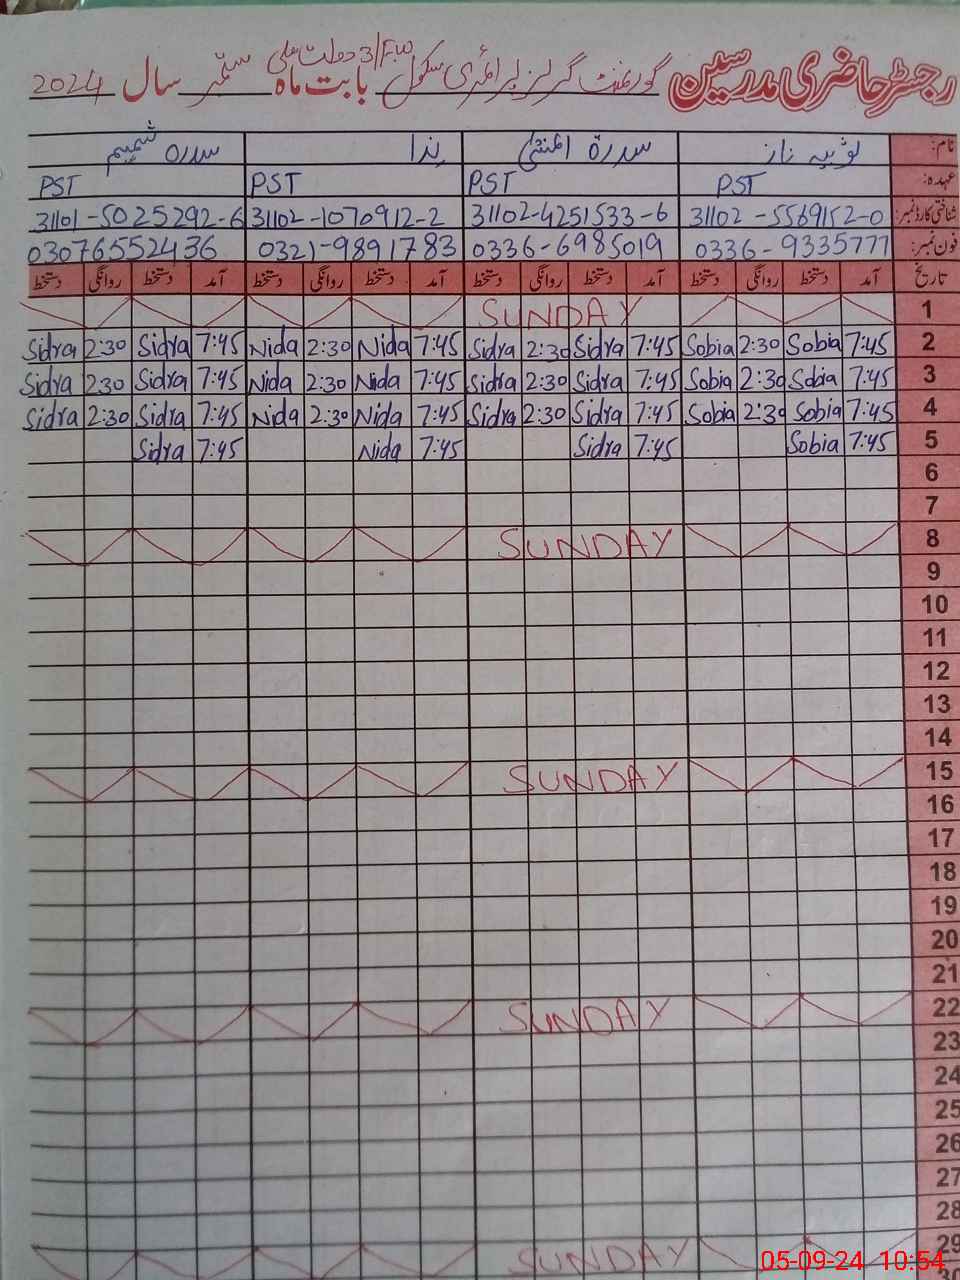 رجسٹر حاضری مدرسین گورنمنٹ گرلز پرائمری سکول 3/FW دولت علی بابت ماہ ستمبر سال 2024
نام: ثوبیہ ناز سدرۃ المنتہیٰ ندا سدرہ شمیم
عہدہ: PST PST PST PST
شناختی کارڈ نمبر: 31102-5569152-0 31102-4251533-6 31102-1070912-2 31101-5025292-6
فون نمبر: 0336-9335777 0336-6985019 0321-9891783 03076552436
تاریخ آمد دستخط روانگی دستخط آمد دستخط روانگی دستخط آمد دستخط روانگی دستخط آمد دستخط روانگی دستخط
1 SUNDAY
2 7:45 Sobia 2:30 Sobia 7:45 Sidra 2:30 Sidra 7:45 Nida 2:30 Nida 7:45 Sidra 2:30 Sidra
3 7:45 Sobia 2:30 Sobia 7:45 Sidra 2:30 Sidra 7:45 Nida 2:30 Nida 7:45 Sidra 230 Sidra
4 7:45 Sobia 2:30 Sobia 7:45 Sidra 2:30 Sidra 7:45 Nida 2:30 Nida 7:45 Sidra 2:30 Sidra
5 7:45 Sobia 7:45 Sidra 7:45 Nida 7:45 Sidra
6
7
8 SUNDAY
9
10
11
12
13
14
15 SUNDAY
16
17
18
19
20
21
22 SUNDAY
23
24
25
26
27
28
29 SUNDAY
30
05-09-24 10:54